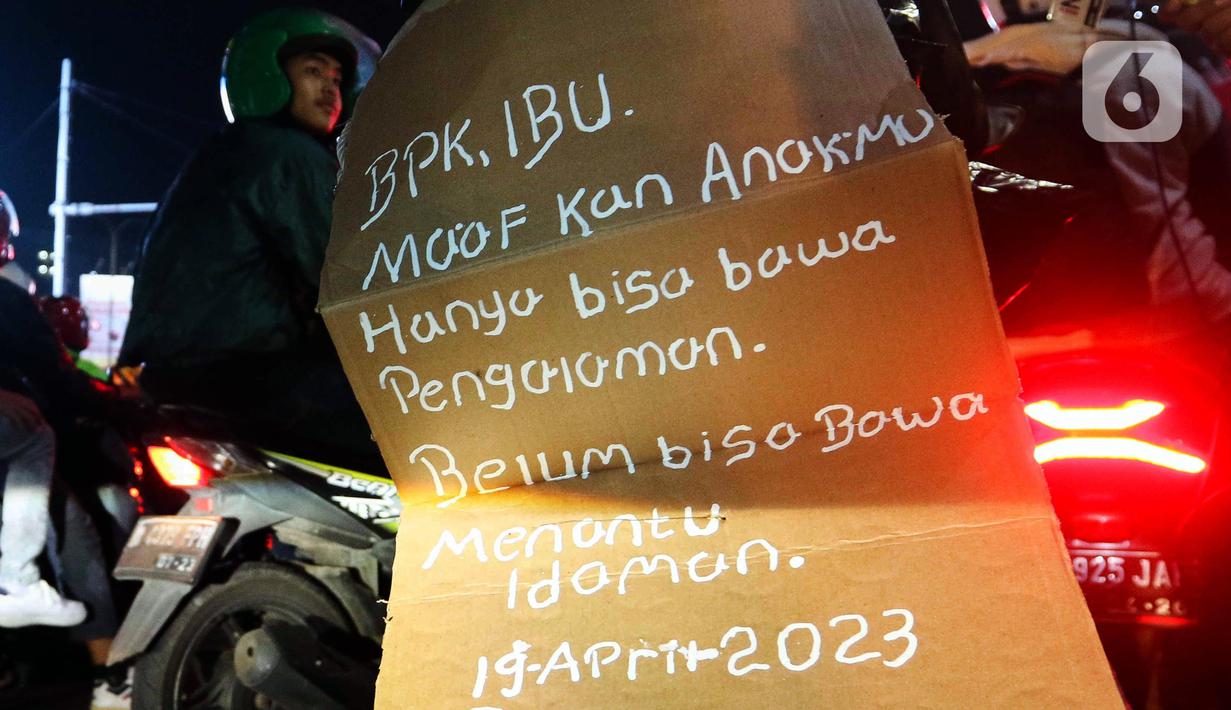 BPK, IBU.
Maaf Kan Anakmu
Hanya bisa bawa
Pengalaman.
Belum bisa Bawa
Menantu
Idaman.
19-April-2023
925 JA
6